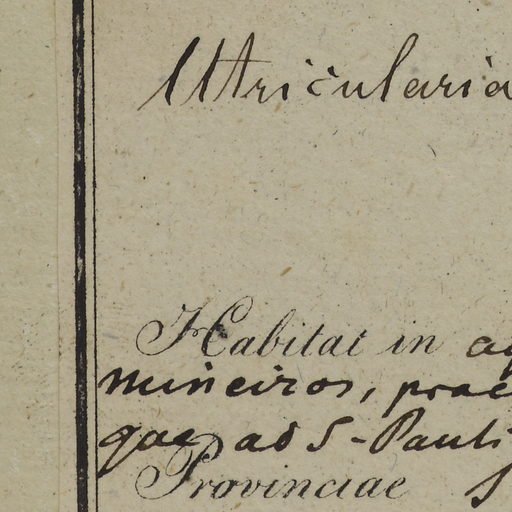 Utricularia
Habitat in
mineiros,
quae ad S. Pauli
Provinciae S